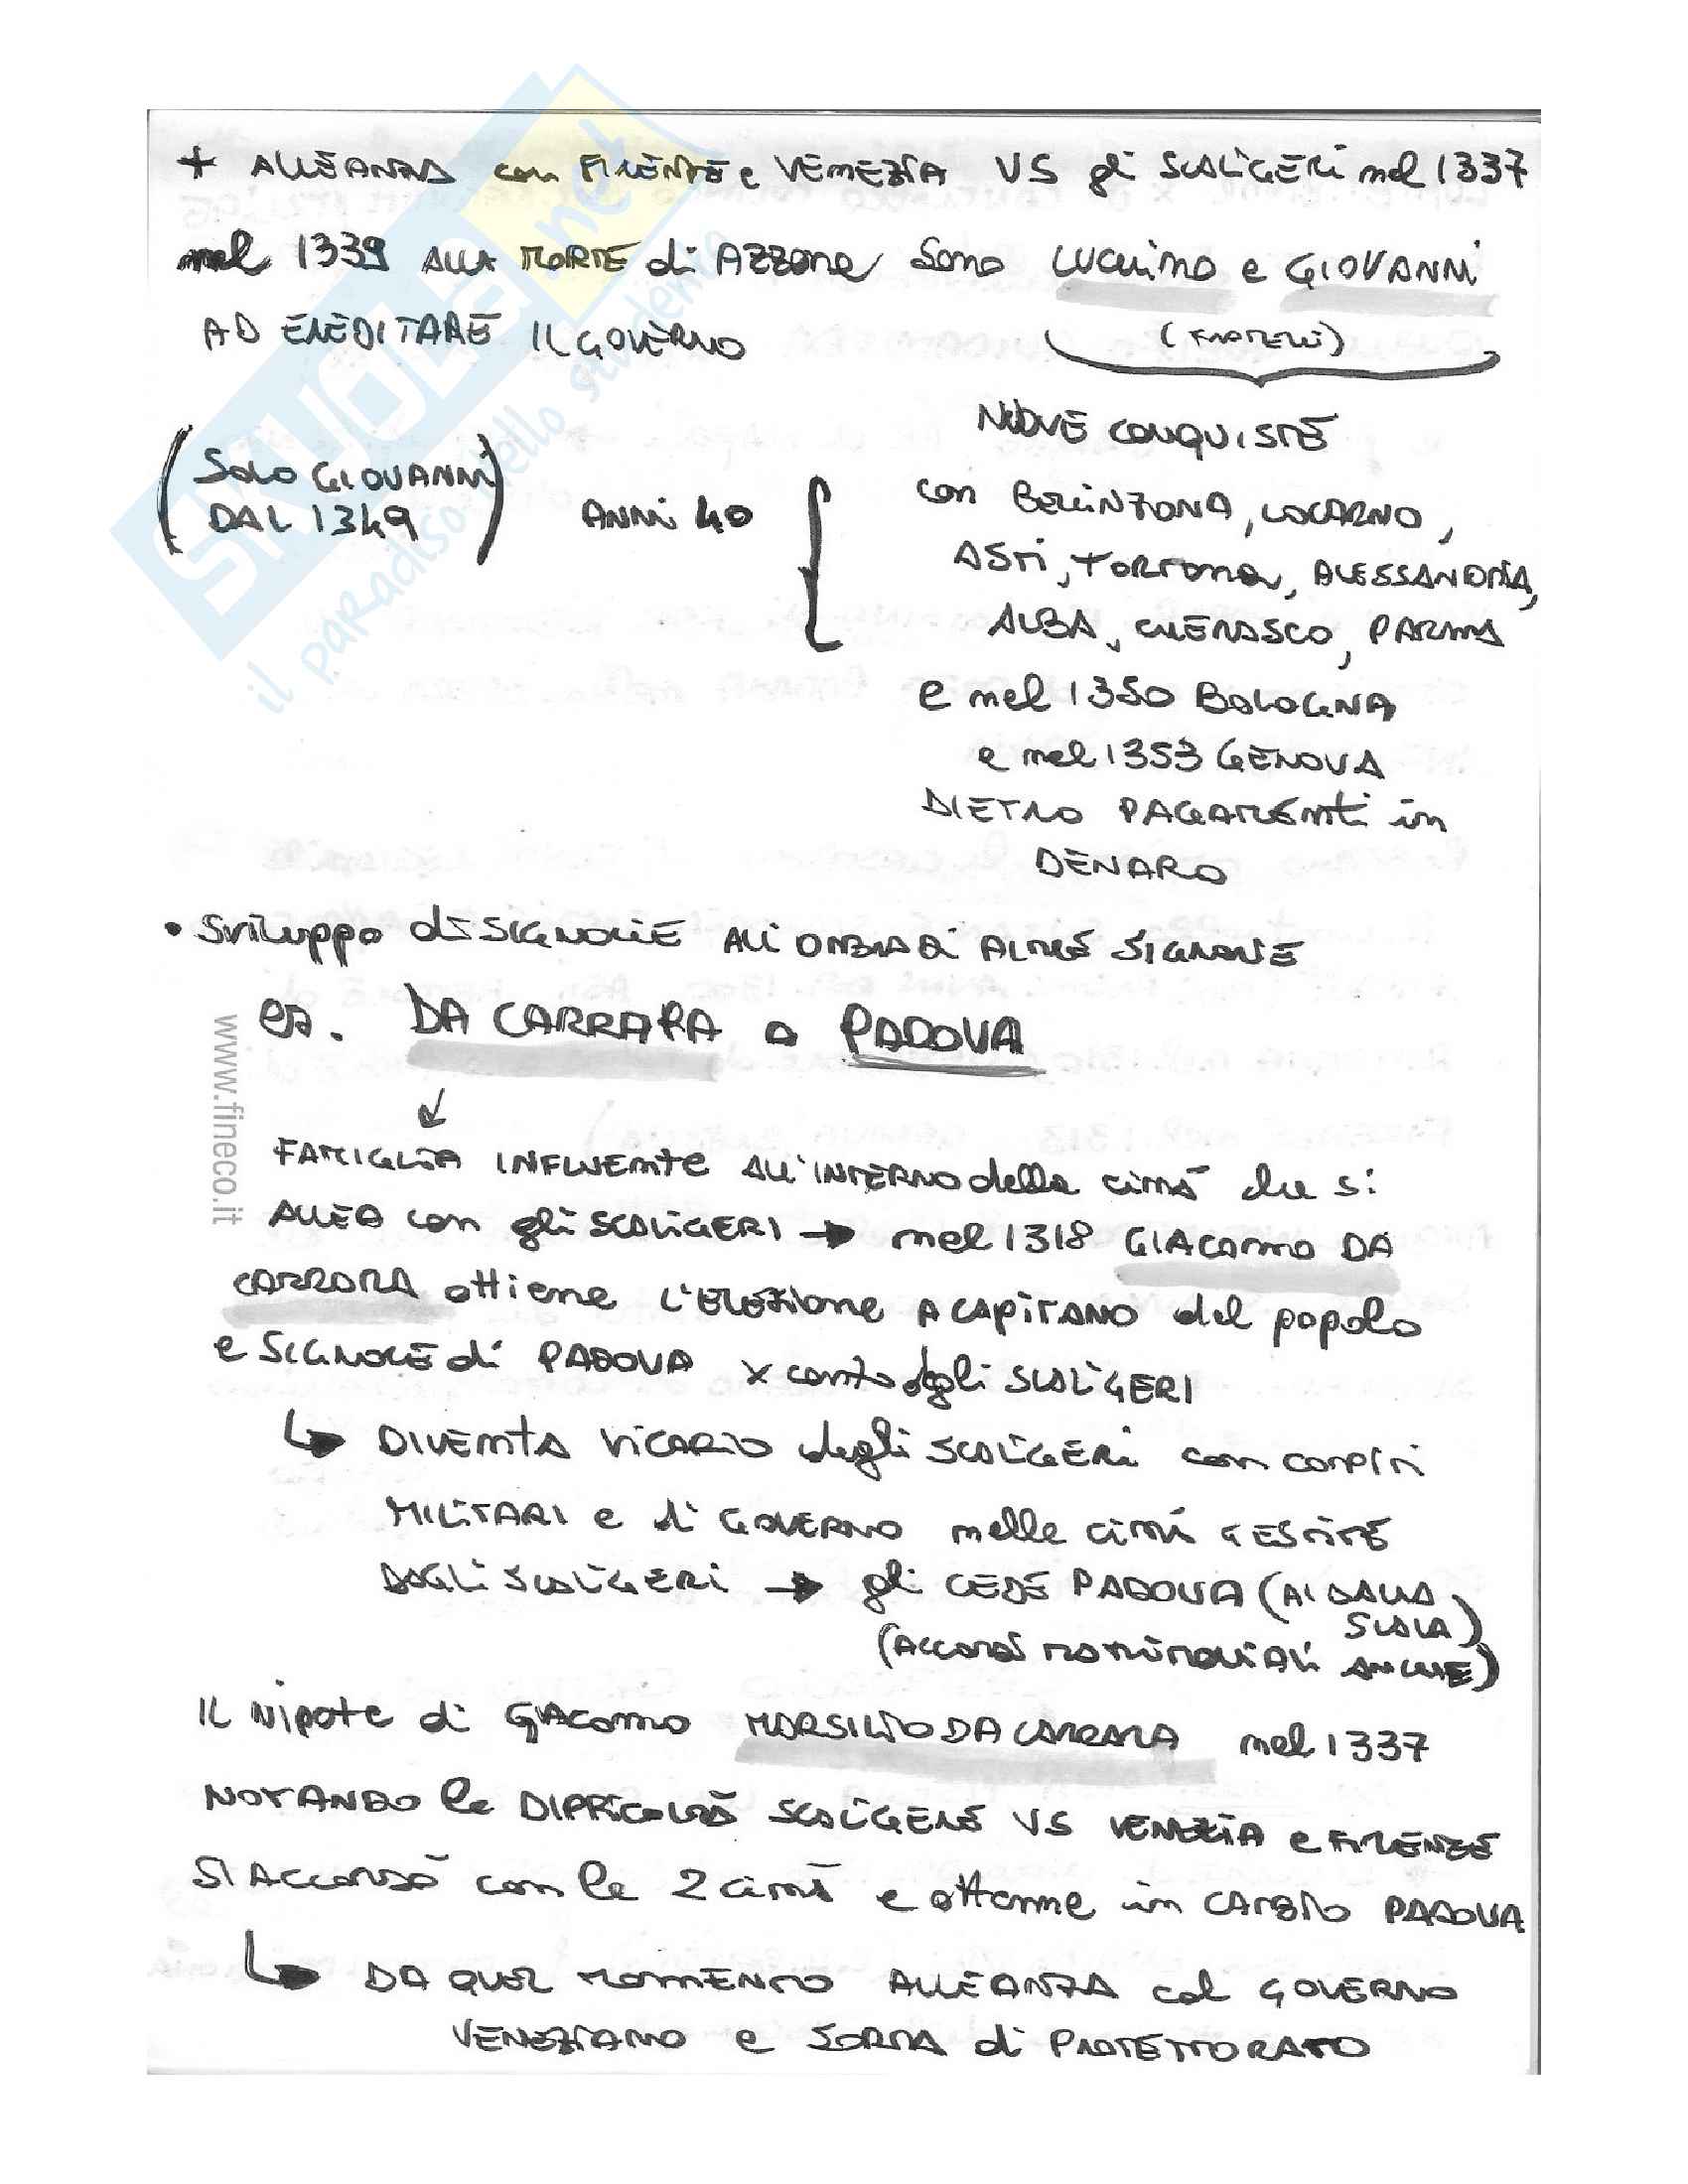 + ALLEANZA con FIRENZE e VENEZIA VS gli SCALIGERI nel 1337
nel 1339 ALLA MORTE di AZZONE sono LUCHINO e GIOVANNI
AD EREDITARE IL GOVERNO
(FRATELLI)
NUOVE CONQUISTE
(SOLO GIOVANNI
DAL 1349)
ANNI 40
con BELLINZONA, LOCARNO,
ASTI, TORTONA, ALESSANDRIA,
ALBA, CHERASCO, PARMA
e nel 1350 BOLOGNA
e nel 1353 GENOVA
DIETRO PAGAMENTI in
DENARO
• Sviluppo di SIGNORIE ALL'OMBRA di ALTRE SIGNORIE
es. DA CARRARA a PADOVA
↓
FAMIGLIA INFLUENTE ALL'INTERNO della città che si
ALLEA con gli SCALIGERI → nel 1318 GIACOMO DA
CARRARA ottiene L'ELEZIONE A CAPITANO del popolo
e SIGNORE di PADOVA x conto degli SCALIGERI
↳ DIVENTA VICARIO degli SCALIGERI con compiti
MILITARI e di GOVERNO nelle città GESTITE
DAGLI SCALIGERI → gli CEDE PADOVA (AI DALLA
SCALA)
(ACCORDI MATRIMONIALI ANCHE)
IL NIPOTE di GIACOMO MARSILIO DA CARRARA nel 1337
NOTANDO le DIFFICOLTÀ SCALIGERE VS VENEZIA e FIRENZE
SI ACCORDÒ con le 2 città e ottenne in CAMBIO PADOVA
↳ DA QUEL MOMENTO ALLEANZA col GOVERNO
VENEZIANO e SORTA di PROTETTORATO
www.fineco.it
SKUOLA.net
il paradiso dello studente